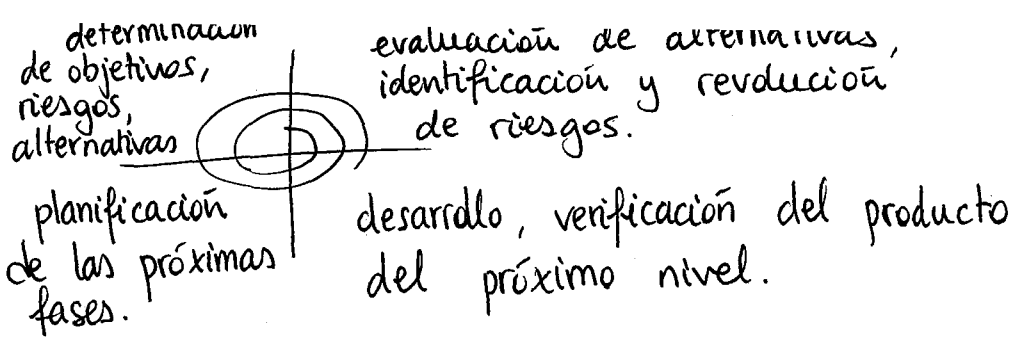 determinación
de objetivos,
riesgos,
alternativas
evaluación de alternativas,
identificación y revolución
de riesgos.
planificación
de las próximas
fases.
desarrollo, verificación del producto
del próximo nivel.